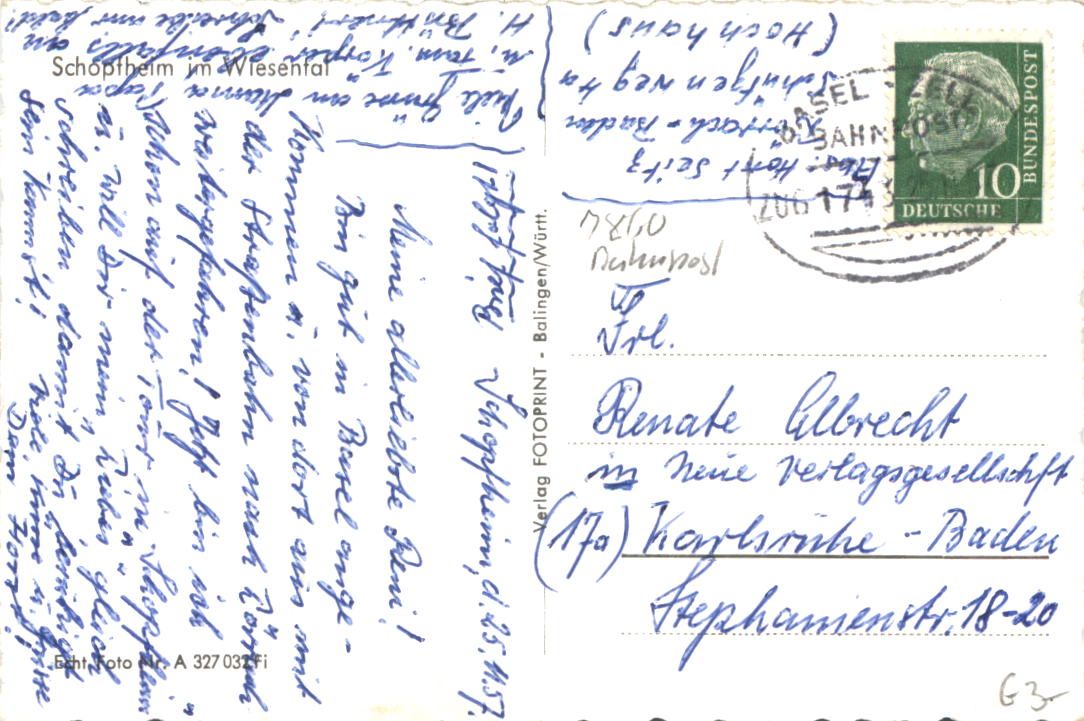 Schopfheim im Wiesental
Bist Jagst Jing!
Schopfheim, d. 25. 11. 57.
Meine allerliebste Reni!
Bin gut in Basel ange-
kommen u. von dort aus mit
der Straßenbahn nach Lörrach
weitergefahren! Jetzt bin ich
schon auf der Tour in "Schopfheim"
u. will Dir mein "Liebes" gleich
schreiben damit Du beruhigt
sein kannst! Viele, innige Grüße
Dein Horst!
Viele Grüße an Mama Papa
u. fam. Körper ebenfalls an
H. Büttner! Schreibe mir bald!
Echt Foto Nr. A 327 032 Fi
Verlag FOTOPRINT - Balingen/Württ.
Abs: Horst Seitz
Lörrach - Baden
Schützenweg 4a
(Hochhaus)
BASEL ZELL
BAHNPOST
ZUG 1743
10
DEUTSCHE
BUNDESPOST
Bahnpost
Frl.
Renate Albrecht
in Neue Verlagsgesellschaft
(17a) Karlsruhe - Baden
Stephanienstr. 18-20
G 3-